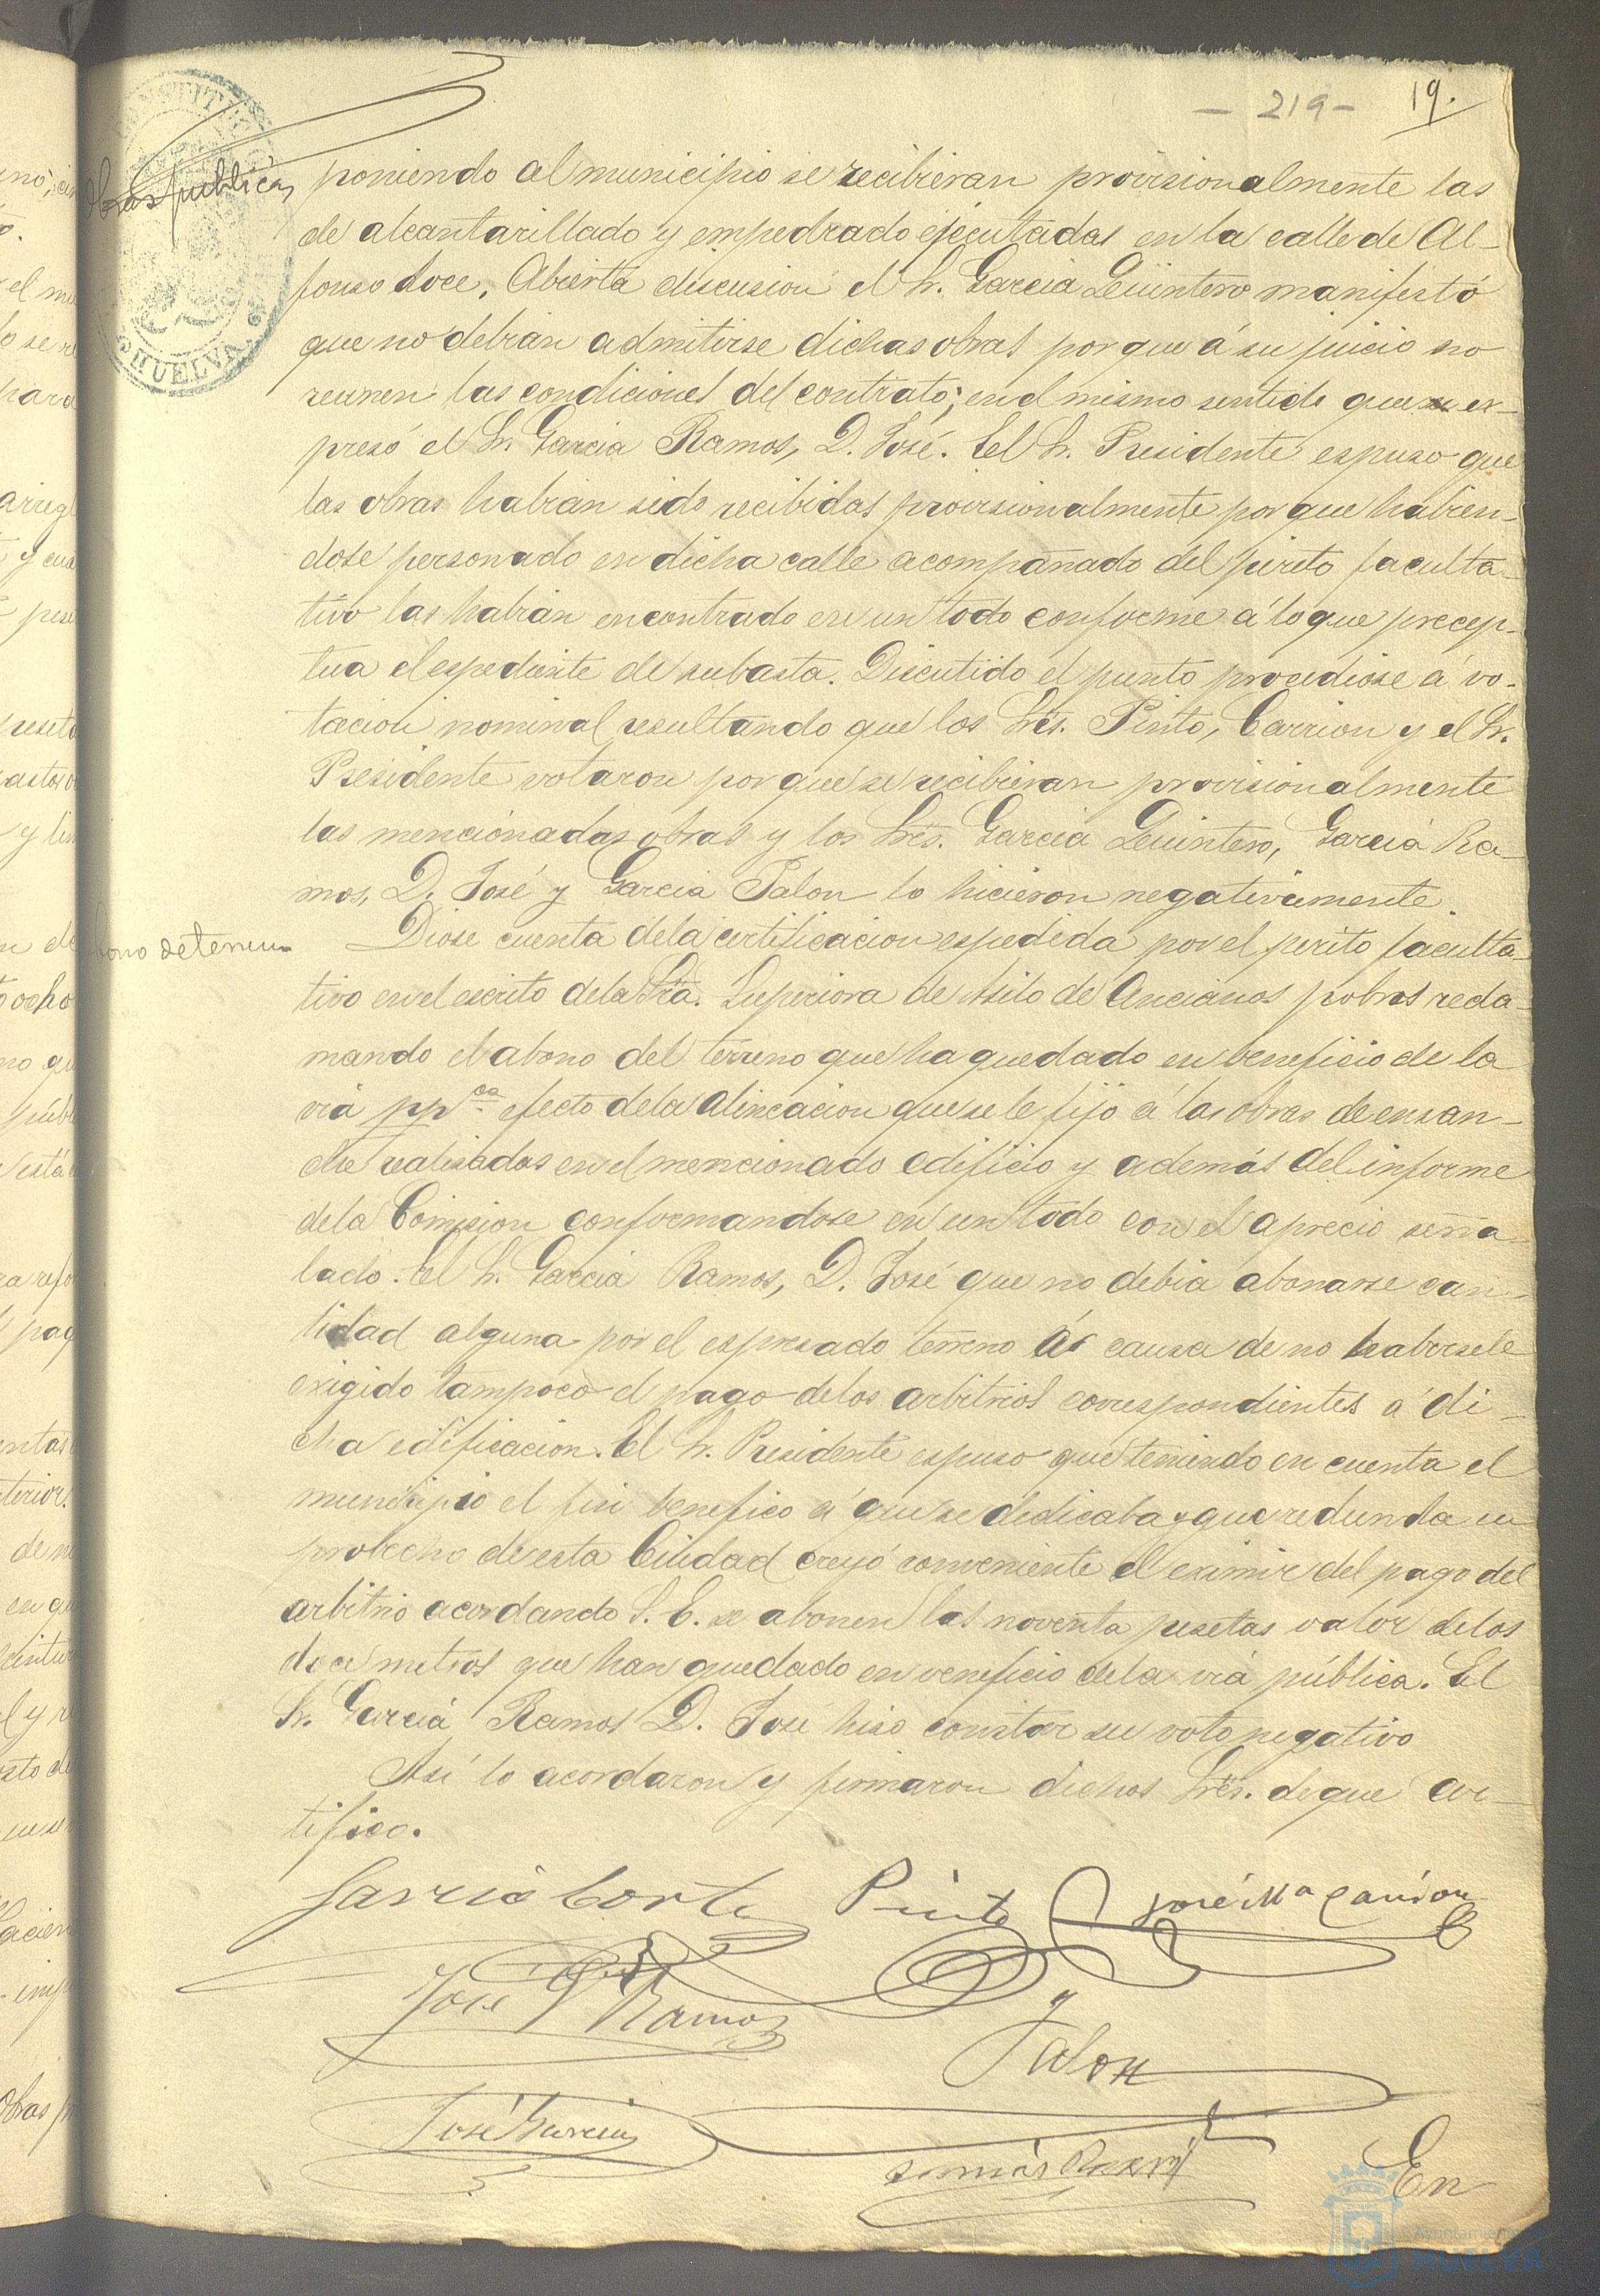 - 219 - 19.
Obras publicas
poniendo al municipio se recibieran provisionalmente las
de alcantarillado y empedrado ejecutadas en la calle de Al-
fonso doce. Abierta discusion el Sr. Garcia Quintero manifestó
que no debian admitirse dichas obras porque á su juicio no
reunen las condiciones del contrato; en el mismo sentido que se ex-
presó el Sr. Garcia Ramos, D. José. El Sr. Presidente espuso que
las obras habian sido recibidas provisionalmente por que habien-
dose personado en dicha calle acompañado del perito faculta-
tivo las habian encontrado en un todo conforme á lo que precep-
tua el espediente de subasta. Discutido el punto procediose á vo-
tacion nominal resultando que los Sres. Pinto, Carrion y el Sr.
Presidente votaron por que se recibieran provisionalmente
las mencionadas obras y los Sres. Garcia Quintero, Garcia Ra-
mos, D. José y Garcia Jalon lo hicieron negativamente.
bono de terreno
Diose cuenta de la certificacion espedida por el perito faculta-
tivo en el escrito de la Sra. Superiora de Asilo de Ancianos pobres recla-
mando el abono del terreno que ha quedado en beneficio de la
via ppca. efecto de la alineacion que se le fijó á las obras de ensan-
che realizadas en el mencionado edificio y además del informe
de la Comision conformandose en un todo con el aprecio seña-
lado. El Sr. Garcia Ramos, D. José que no debia abonarse can-
tidad alguna por el espresado terreno á causa de no habersele
exigido tampoco el pago de los arbitrios correspondientes á di-
cha edificacion. El Sr. Presidente espuso que teniendo en cuenta el
municipio el fin benefico á que se dedicaba y que redunda en
probecho de esta Ciudad creyó conveniente el eximir del pago del
arbitrio acordando S. E. se abonen las noventa pesetas valor de los
doce metros que han quedado en veneficio de la via pública. El
Sr. Garcia Ramos D. José hizo constar su voto negativo
Asi lo acordaron y firmaron dichos Sres. de que cer-
tifico.
Garcia Corte Pinto José Mª Carrion
José G Ramos
Jalon
José Garcia
En
CONSTITUC
HUELVA
Ayuntamiento
HUELVA